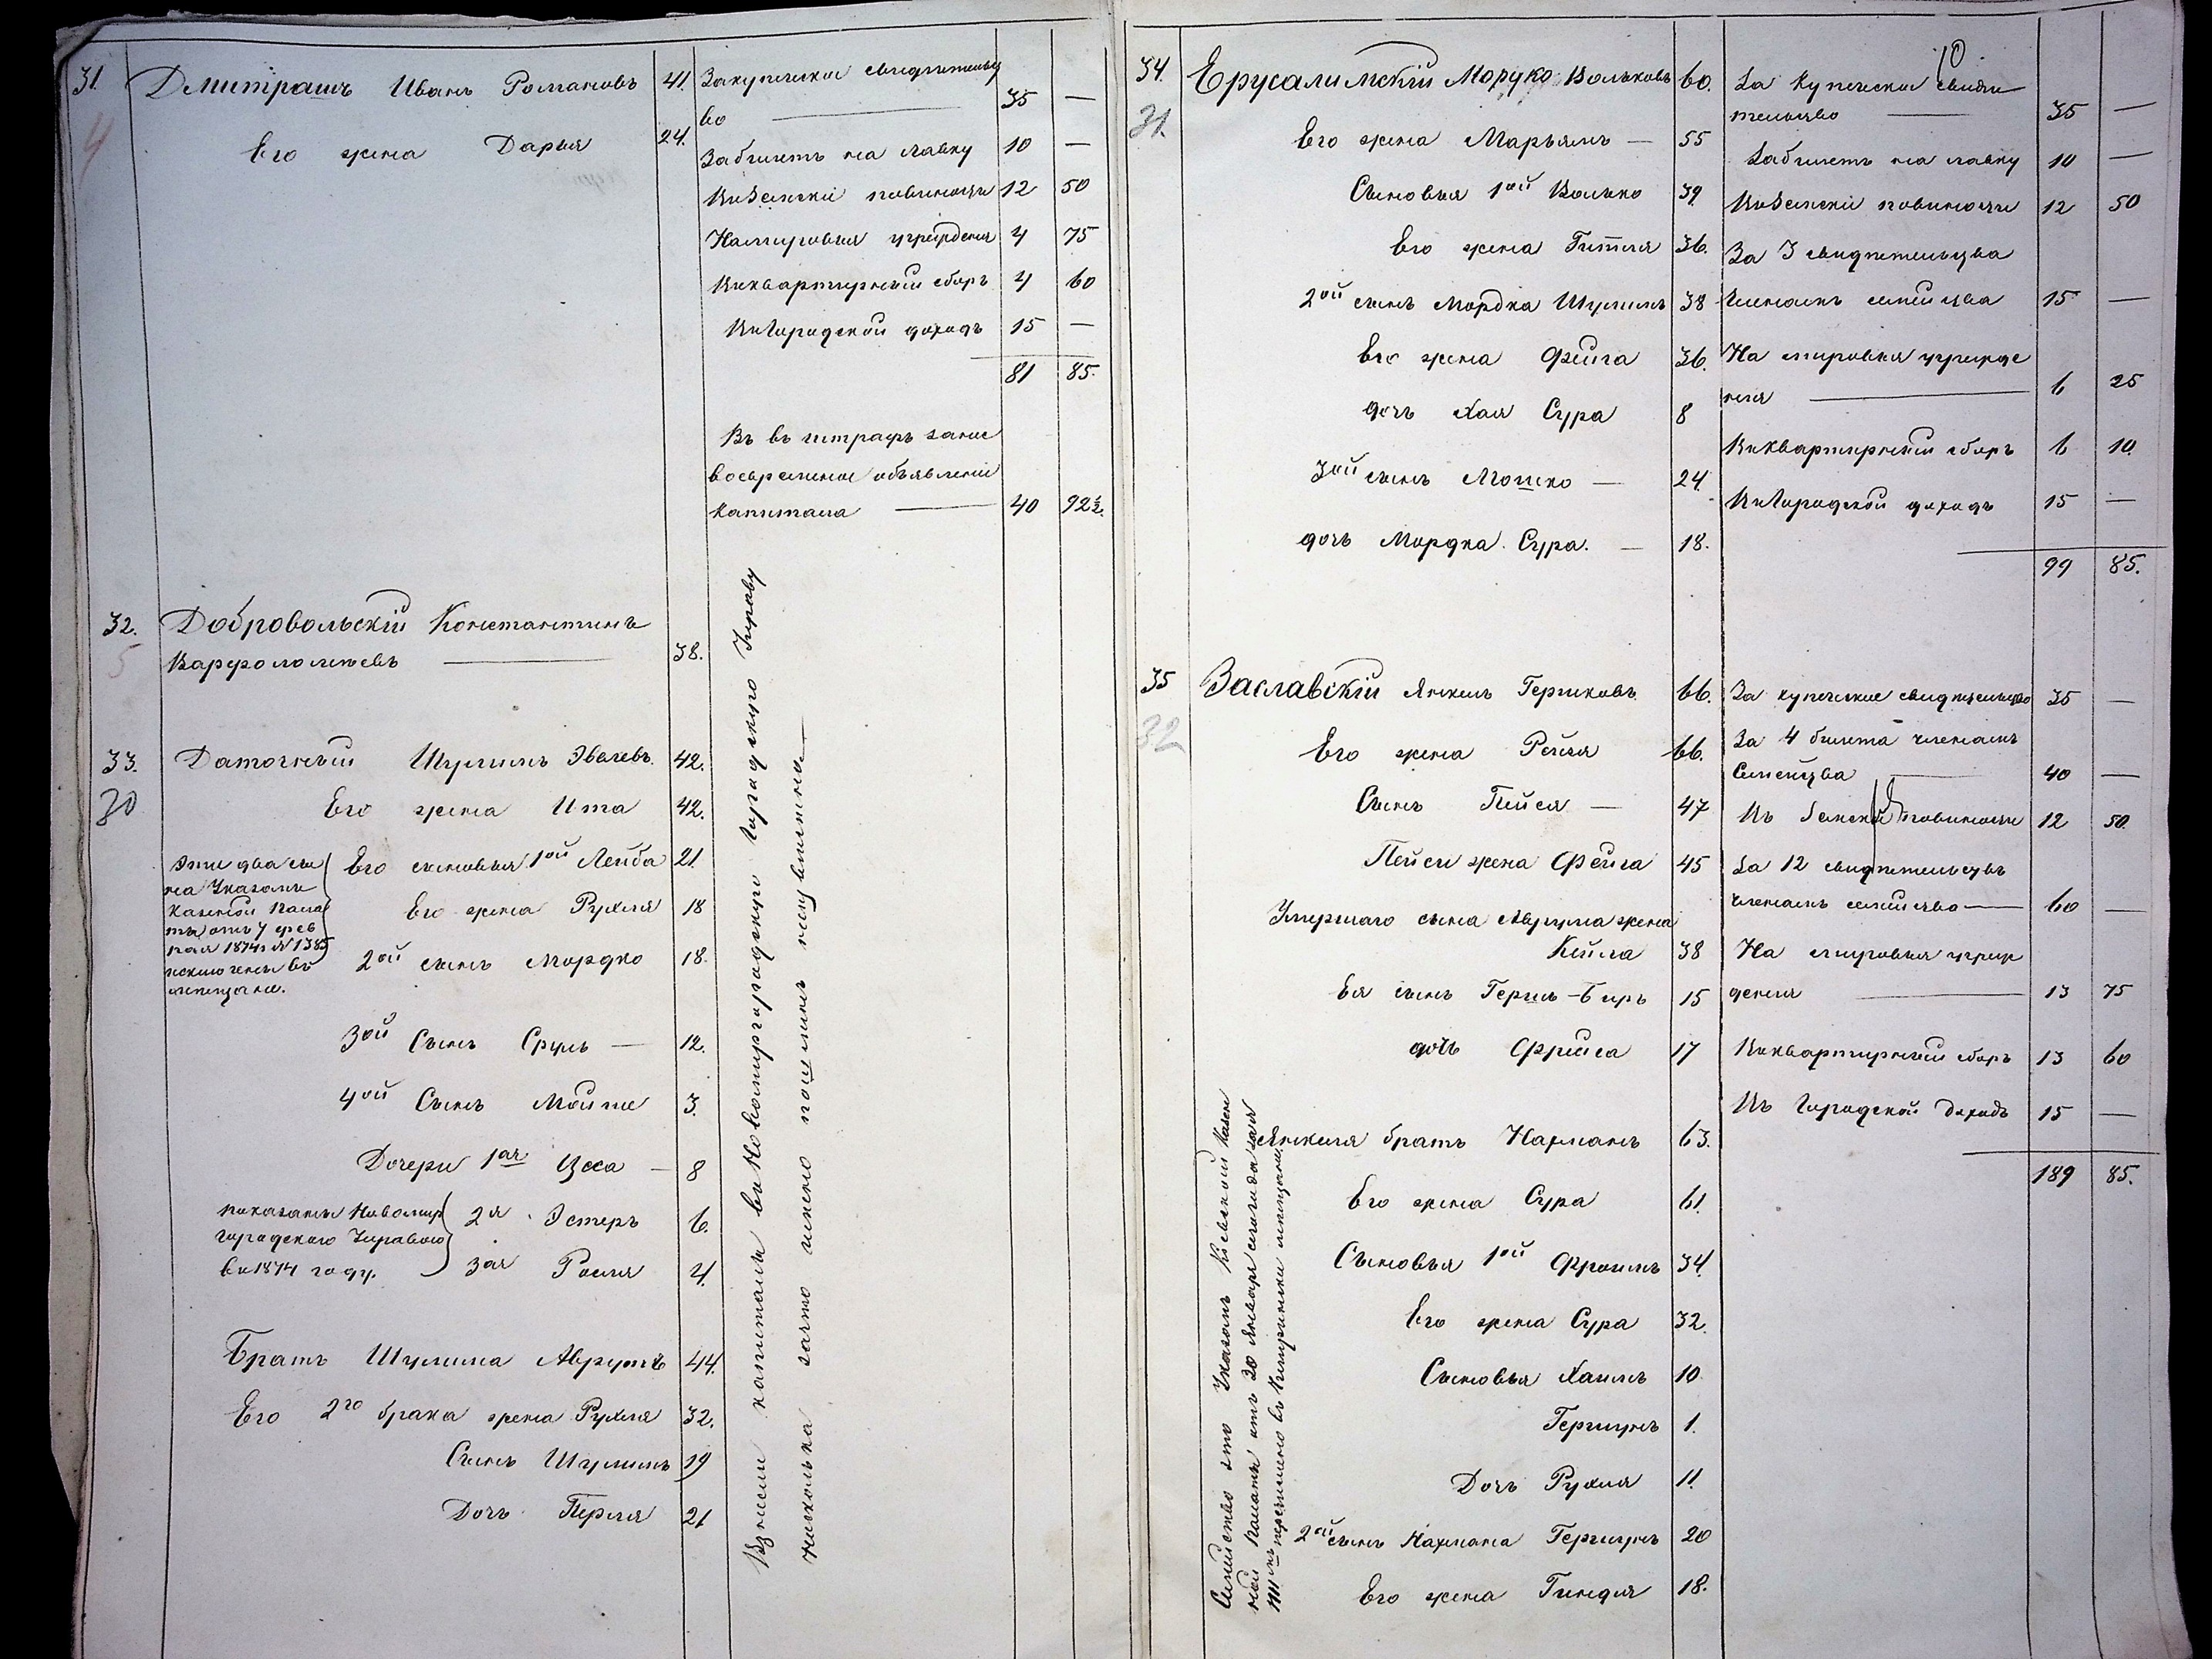 31. Дмитрашъ Иванъ Романовъ 41. За купеческое свидѣтельст
4
во — 35 —
Его жена Дарья 24. За билетъ на лавку 10 —
На Земскіе повинности 12 50
На мировыя учрежденія 4 75
На квартирный сборъ 4 60
На Городской доходъ 15 —
81 85.
восвременное объявленіе
капитала — 40 92½.
32. Добровольскій Константинъ
5 Варфоломеевъ — 38.
33. Даточный Шулимъ 42.
30 Его жена Ита 42.
Его сыновья 1ой Лейба 21.
Его жена Рухля 18
2ой сынъ Мордко 18.
Эти два сы
на Указомъ
Казенной Пала
ты отъ 7 фев
раля 1874 г. № 1385
въ
мещане.
3ой Сынъ Сруль — 12.
4ой Сынъ Мойше 3.
Дочери 1ая — 8
2я Эстеръ 6.
3ая Рося 4.
показаны Новомир
городскою Управою
въ 1874 году.
Братъ Шулима Аврумъ 44.
Его 2го брака жена Рухля 32.
Сынъ Шулимъ 19
Дочь Перля 21
капиталъ въ Новомиргородскую Городскую Управу
пошлинъ
34. Ерусалимскій Мордко Вольковъ 60. За купеческое свидѣ
10
31. тельство — 35 —
Его жена Марьямъ — 55
За билетъ на лавку 10 —
Сыновья 1ой Волько 39. На Земскіе повинности 12 50
Его жена Гитля 36. За 3 свидѣтельства
2ой сынъ Мордка Шулимъ 38 членамъ семейства 15 —
Его жена Фейга 36. На мировыя учрежде
нія — 6 25
дочь Хая Сура 8
На квартирный сборъ 6 10.
3ой сынъ Мошко — 24.
На Городской доходъ 15 —
дочь Мордка Сура. — 18.
99 85.
35 Заславскій Янкель Гершковъ 66. За купеческое свидѣтельство 35 —
32 Его жена Рейзя 66. За 4 билета членамъ
Семейства — 40 —
Сынъ Пейся — 47 На земскіе повинности 12 50.
Пейси жена Фейга 45 За 12 свидѣтельствъ
членамъ семейства — 60 —
Умершаго сына Аврума жена
Кейла 38 На мировыя учреж
Ея сынъ Гершъ-Беръ 15 денія — 13 75
дочь Фрейга 17 На квартирный сборъ 13 60
На Городской доходъ 15 —
Янкеля братъ Нахманъ 63.
189 85.
Его жена Сура 61.
Сыновья 1ой Фроимъ 34.
Его жена Сура 32.
Сыновья Хаимъ 10
Гершунъ 1.
Дочь Рухля 11.
2ой сынъ Нахмана Гершунъ 20
Его жена Гиндя 18.
Семейство это Указомъ Кіевской Казен
ной Палаты отъ 20 Января сего года за №
перечислено въ мещане